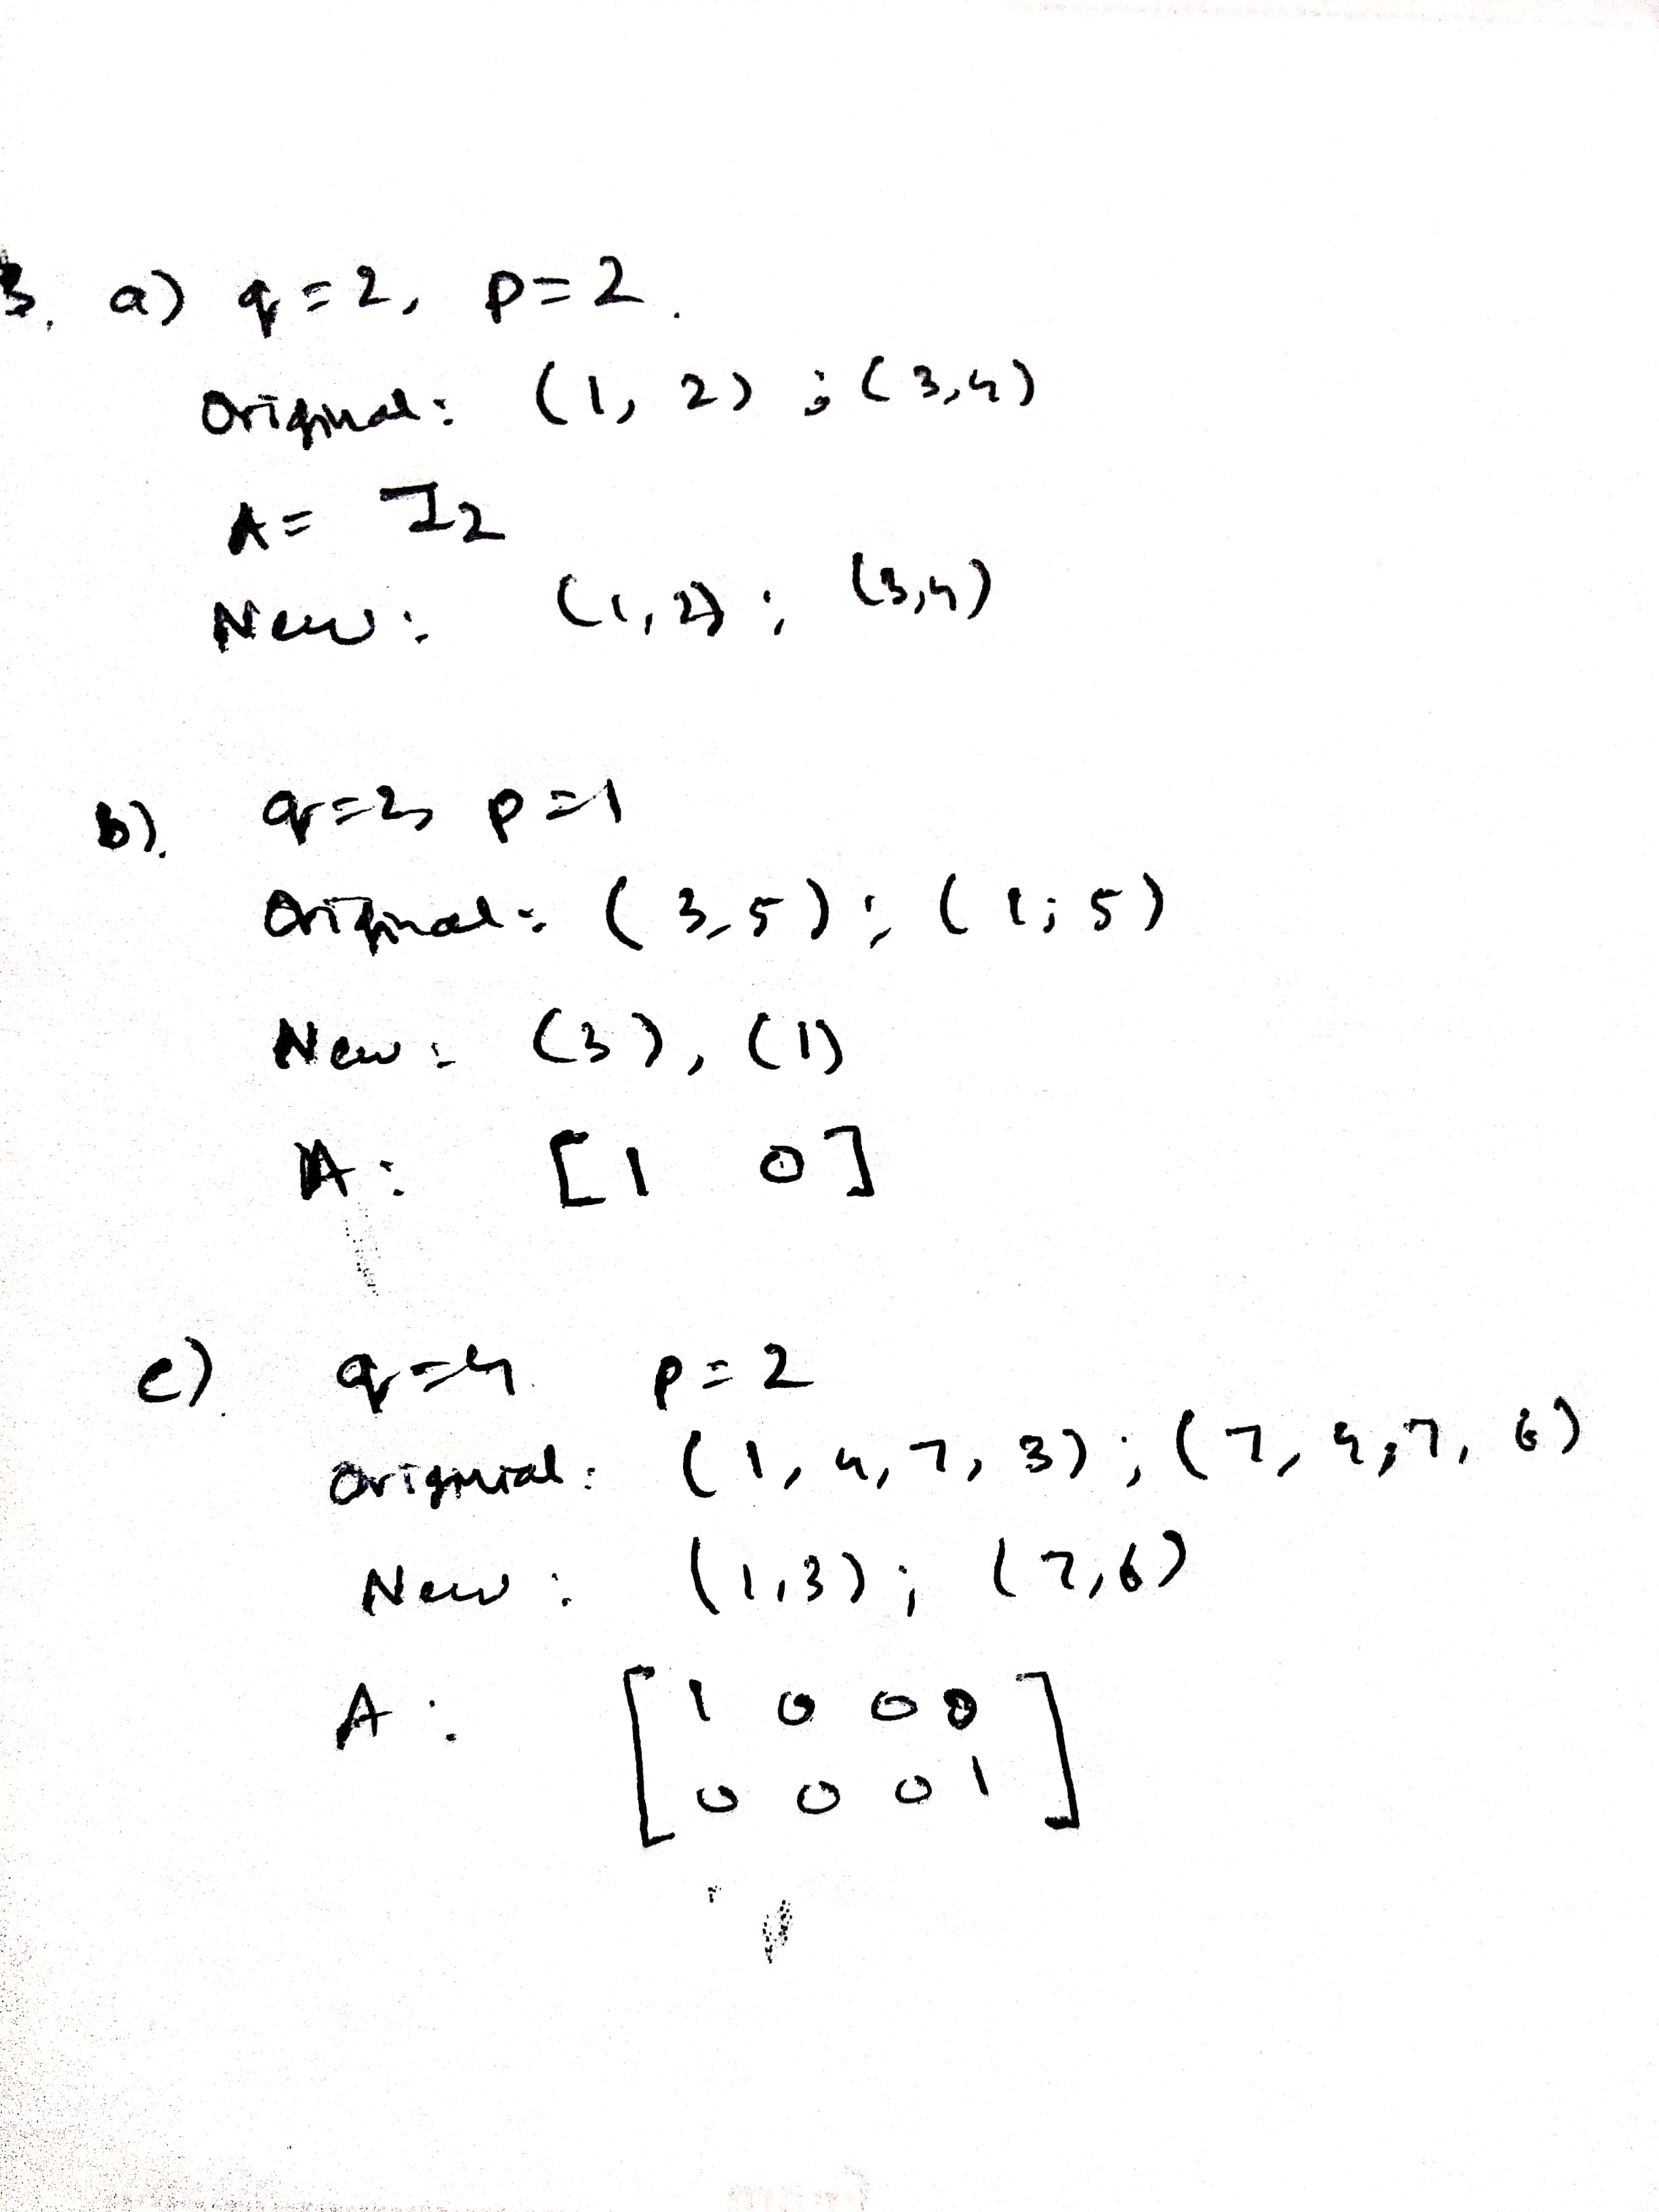 3. a) q=2, p=2.
Original: (1, 2) ; (3,4)
A= I2
New: (1,2) ; (3,4)
b). q=2, p=1
Original: (3,5) ; (1;5)
New: (3), (1)
A: [1 0]
c). q=4. p=2
Original: (1, 4, 7, 3) ; (7, 4, 7, 6)
New: (1,3) ; (7,6)
A: [1 0 0 0
0 0 0 1]